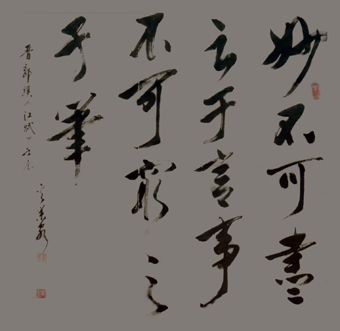 妙不可盡
之于言事
不可窮之
于筆
晉郭璞《江賦》